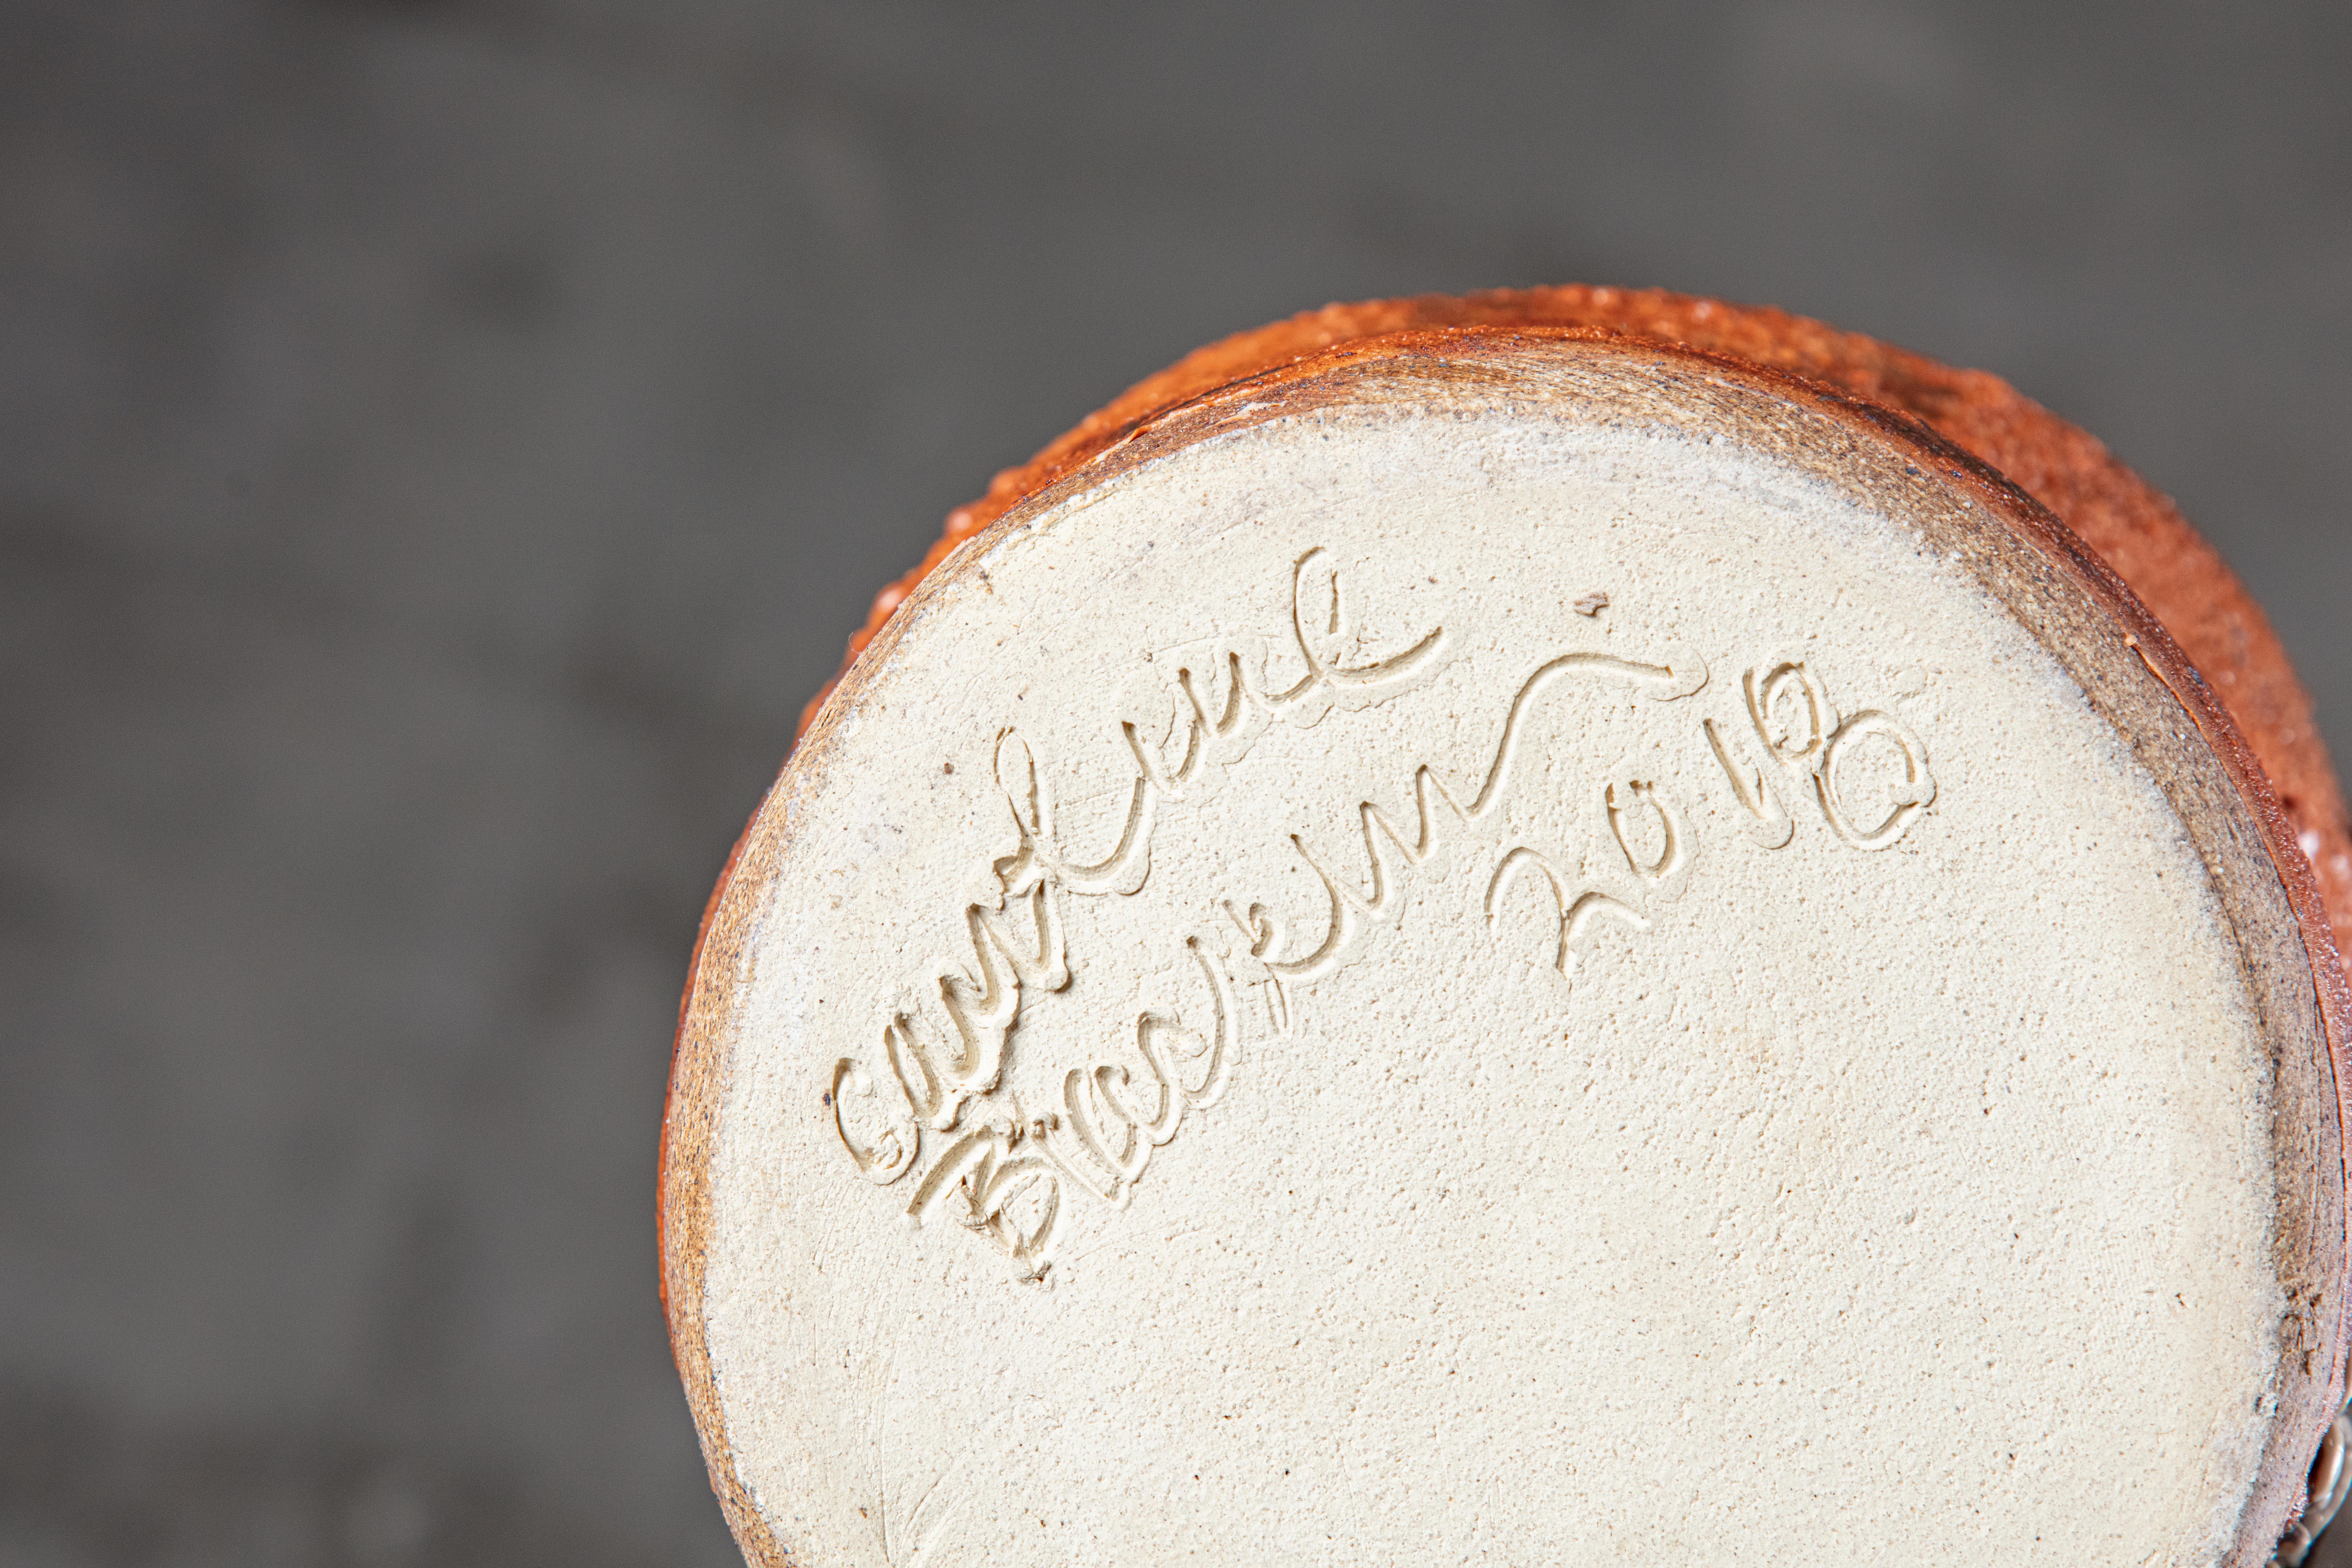 Caroline
Blackburn
2018